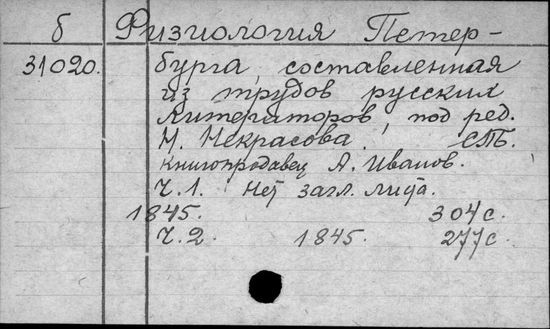 б Физиология Петер-
31020. бурга, составленная
из трудов русских
литераторов, под ред.
Н. Некрасова. СПБ.
Книгопродавец А. Иванов.
Ч.1. Нет загл. листа.
1845. 304 с.
Ч.2. 1845. 277 с.